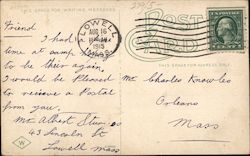 THIS SPACE FOR WRITING MESSAGES
POST
LOWELL
AUG 16
1915
MASS.
Friend
I had
time at camp
to be their again.
I would be Pleased
to recieve a Postal
from you.
Mr Albert
43 Lincoln St
Lowell Mass
THIS SPACE FOR ADDRESS ONLY
Mr Charles Knowles
Orleans
Mass